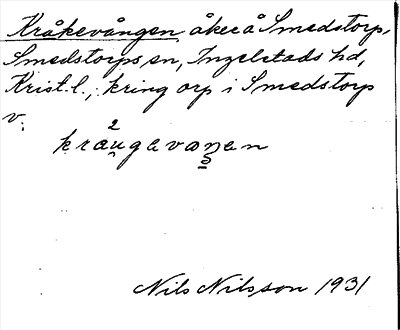 Kråkevången åker å Smedstorp,
Smedstorps sn, Ingelstads hd,
Krist. l., kring orp i Smedstorp
v:
2
kraugavaŋen
Nils Nilsson 1931